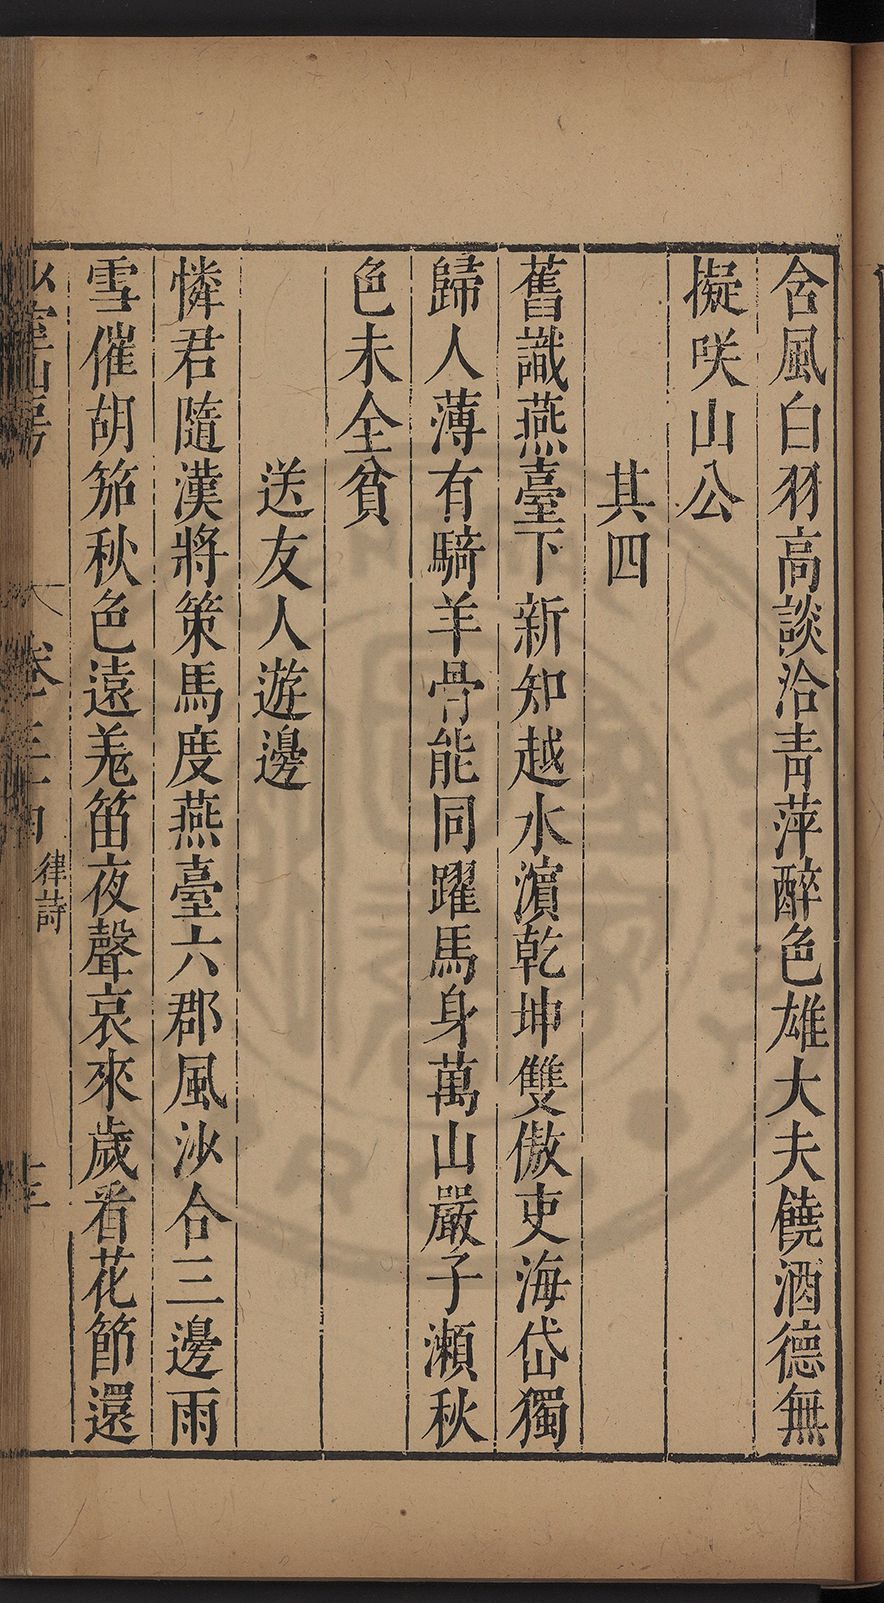 含風白羽高談洽青萍醉色雄大夫饒酒德無
擬咲山公
其四
舊識燕臺下新知越水濵乾坤雙傲吏海岱獨
歸人薄有騎羊骨能同躍馬身萬山嚴子瀬秋
色未全貧
送友人遊邊
憐君隨漢將策馬度燕臺六郡風沙合三邊雨
雪催胡笳秋色遠羌笛夜聲哀來歲看花節還
卷
律詩